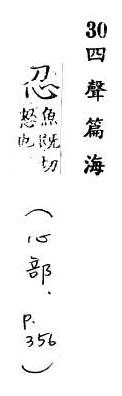 30 四聲篇海
忍 魚既切
怒也
（心部．P.356）